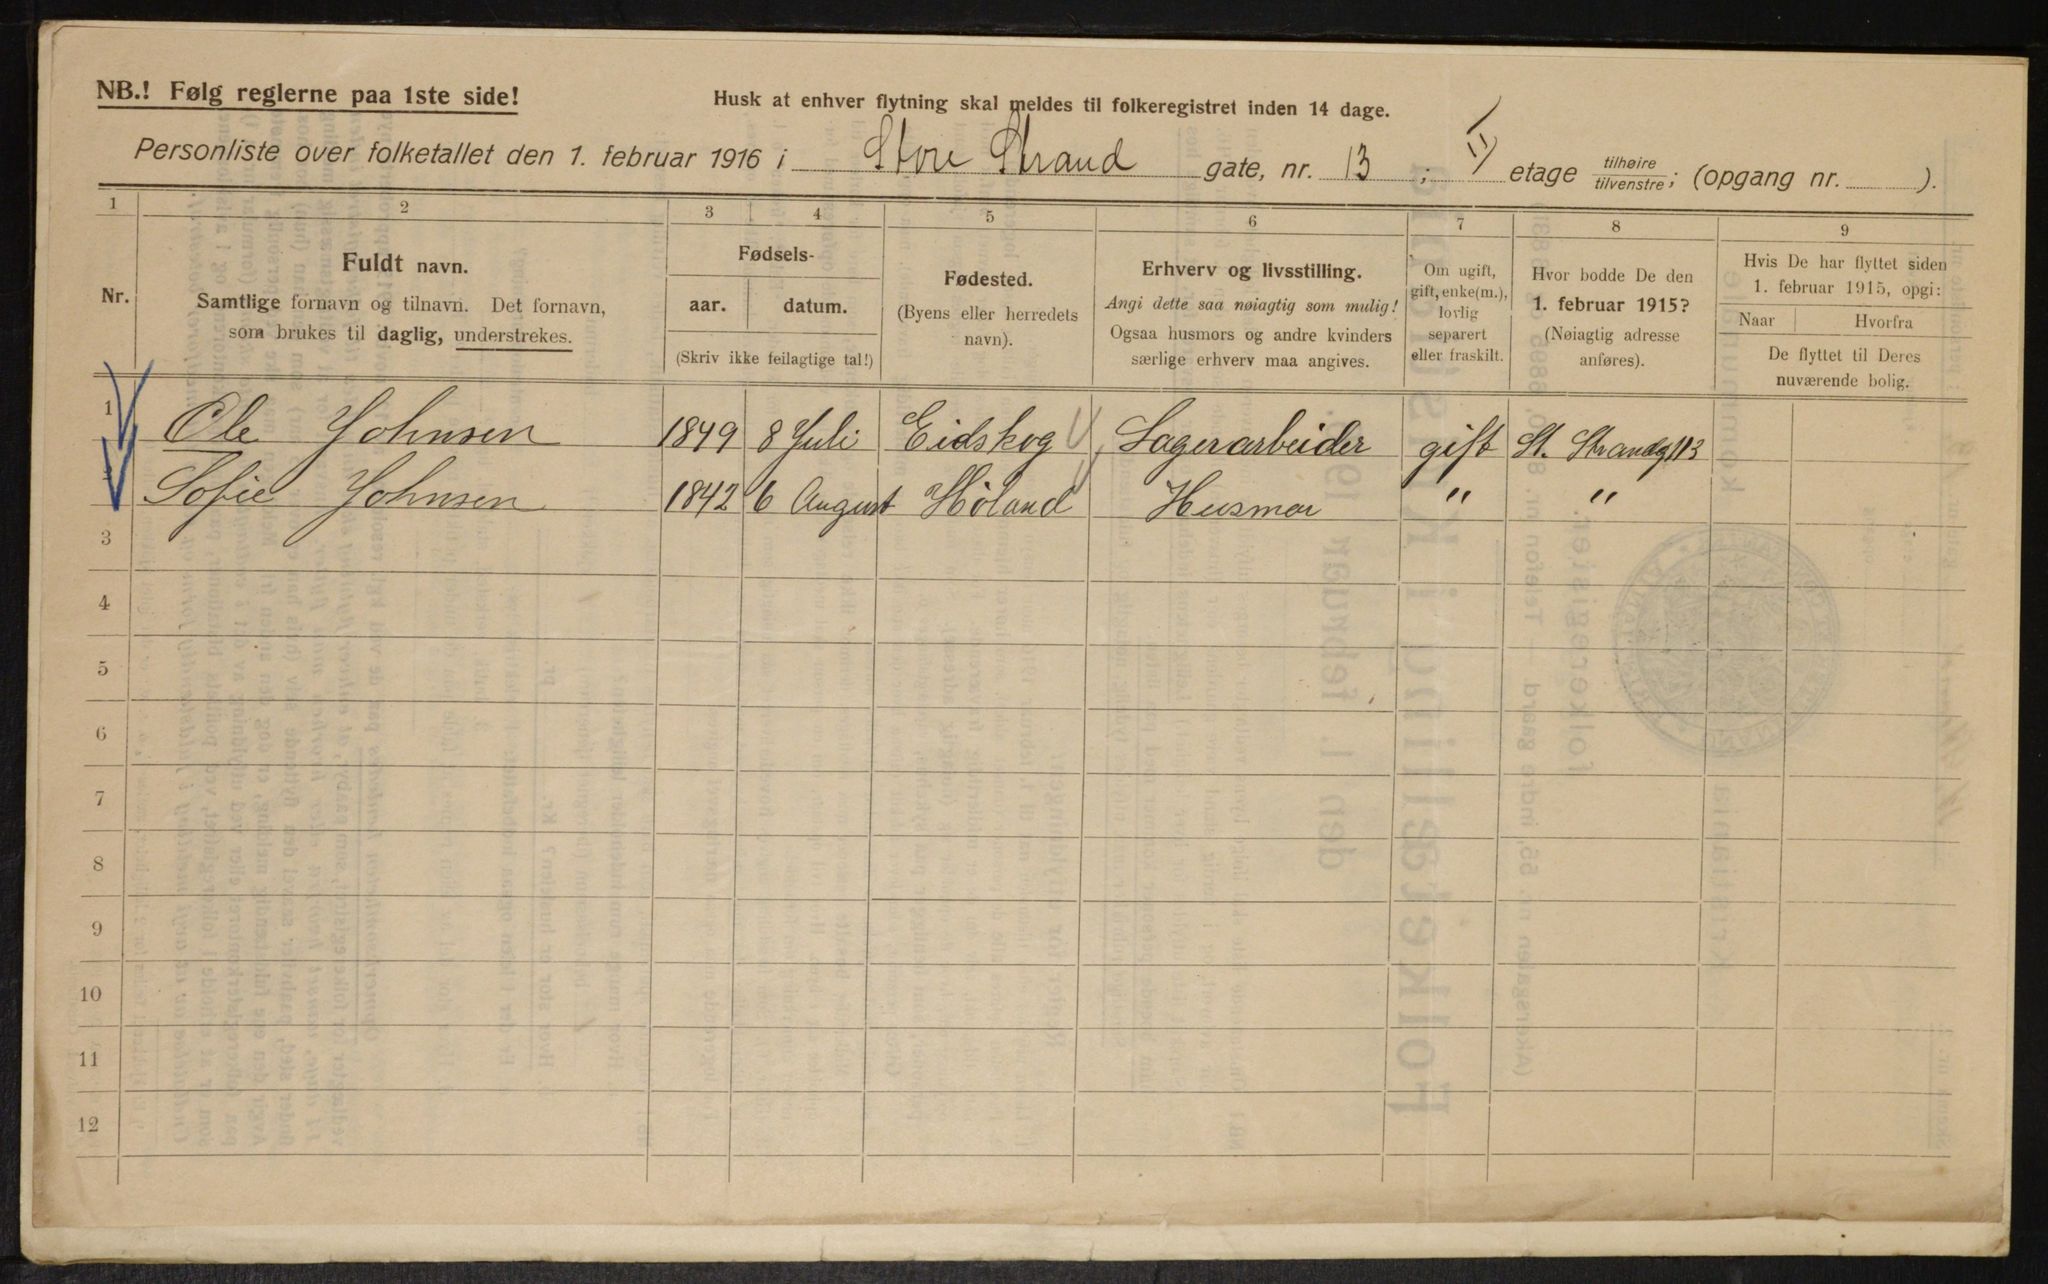 NB.! Følg reglerne paa 1ste side!
Husk at enhver flytning skal meldes til folkeregistret inden 14 dage.
Personliste over folketallet den 1. februar 1916 i Store Strand gate, nr. 13 ; II etage tilhøire/tilvenstre; (opgang nr. ).
1 2 3 4 5 6 7 8 9
Nr.
Fuldt navn.
Samtlige fornavn og tilnavn. Det fornavn,
som brukes til daglig, understrekes.
Fødsels-
aar. datum.
(Skriv ikke feilagtige tal!)
Fødested.
(Byens eller herredets
navn).
Erhverv og livsstilling.
Angi dette saa nøiagtig som mulig!
Ogsaa husmors og andre kvinders
særlige erhverv maa angives.
Om ugift,
gift, enke(m.),
lovlig
separert
eller fraskilt.
Hvor bodde De den
1. februar 1915?
(Nøiagtig adresse
anføres).
Hvis De har flyttet siden
1. februar 1915, opgi:
Naar Hvorfra
De flyttet til Deres
nuværende bolig.
1 Ole Johnsen 1849 8 Juli Eidskog Lagerarbeider gift St. Strandg 13
2 Sofie Johnsen 1842 6 August Høland Husmor " "
3
4
5
6
7
8
9
10
11
12